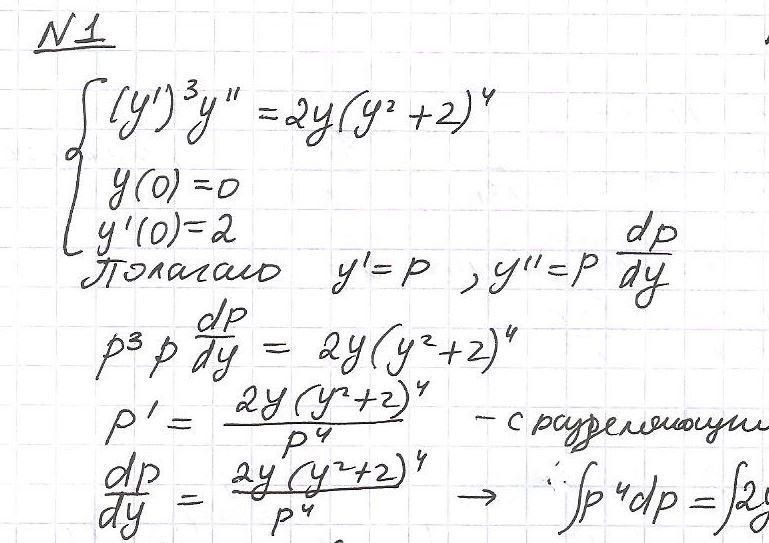 N1
(y')³y'' = 2y(y² + 2)⁴
y(0) = 0
y'(0) = 2
Полагаю y' = p , y'' = p dp/dy
p³ p dp/dy = 2y(y² + 2)⁴
p' = 2y(y² + 2)⁴ / p⁴ – с разделяющими
dp/dy = 2y(y² + 2)⁴ / p⁴ → ∫p⁴dp = ∫2y